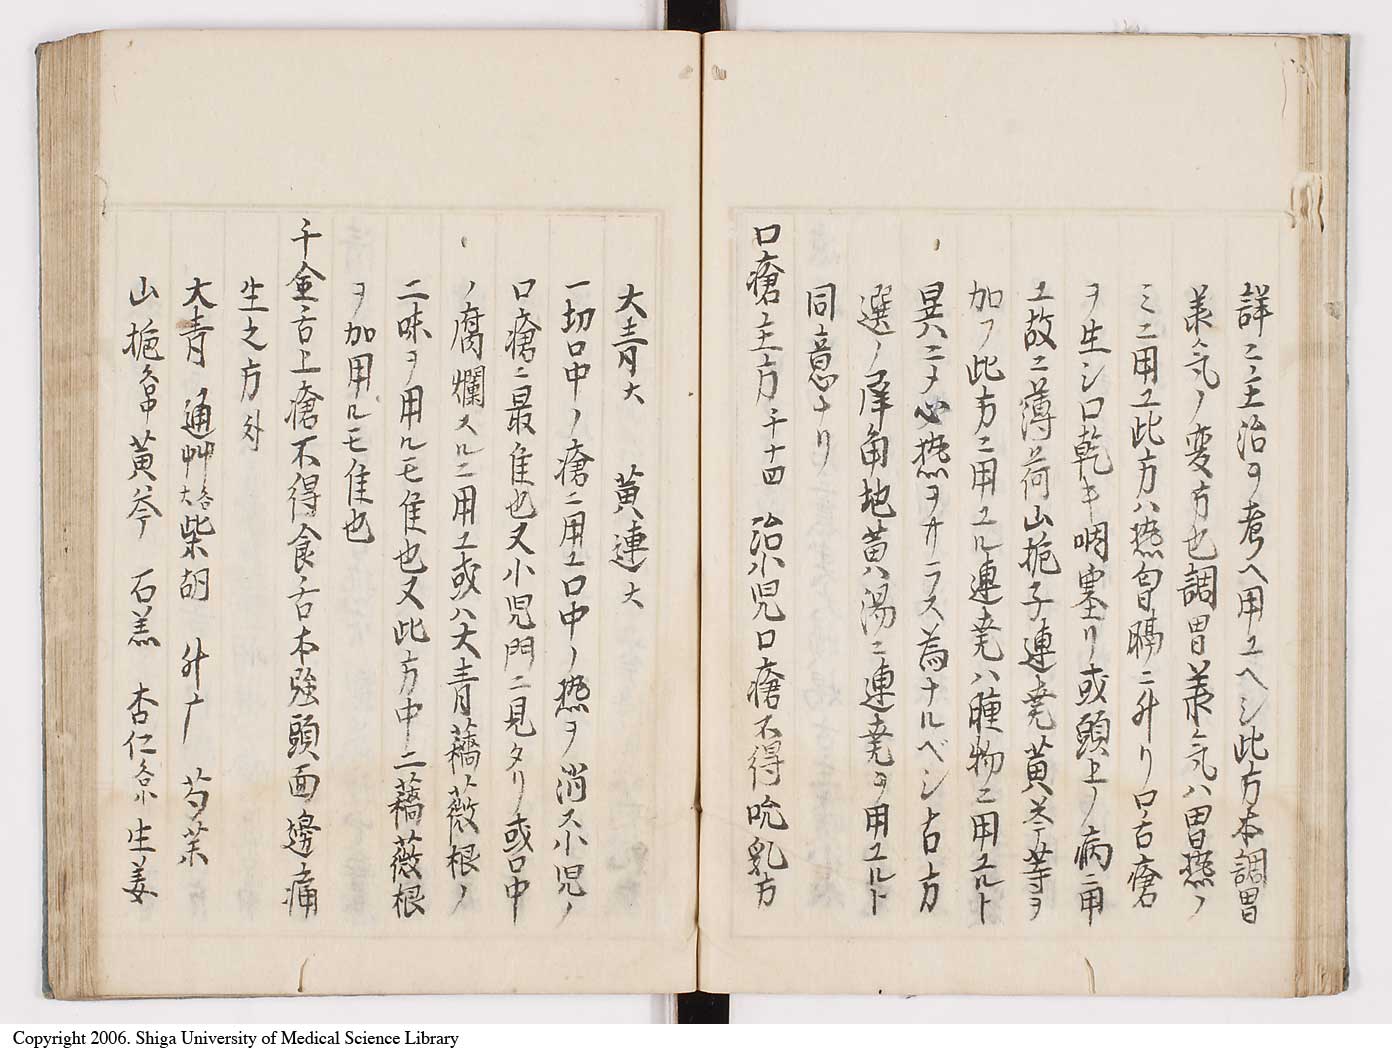 詳ニ主治ヲ考ヘ用ユヘシ此方本調胃
承気ノ変方也調胃承気ハ胃熱ノ
ミニ用ユ此方ハ熱胸膈ニ升リ口舌瘡
ヲ生シ口乾キ咽塞リ或頭上ノ病ニ用
ユ故ニ薄荷山梔子連尭黄芩等ヲ
加フ此方ニ用ユル連尭ハ腫物ニ用ユルト
異ハニメ心熱ヲサラス為ナルベシ古方
選ノ犀角地黄湯ニ連尭ヲ用ユルト
同意ナリ
口瘡主方 千十四 治小児口瘡不得吮乳方
大青大 黄連大
一切口中ノ瘡ニ用ユ口中ノ熱ヲ消ス小児ノ
口瘡ニ最佳也又小児門ニ見タリ或口中
ノ腐爛スルニ用ユ或ハ大青薔薇根ノ
二味ヲ用ルモ佳也又此方中ニ薔薇根
ヲ加用ルモ佳也
千金舌上瘡不得食舌本強頭面邊痛
生之方 外
大青 通艸各大 柴胡 升广 芍薬
山梔各中 黄芩 石羔 杏仁各小 生姜
Copyright 2006. Shiga University of Medical Science Library